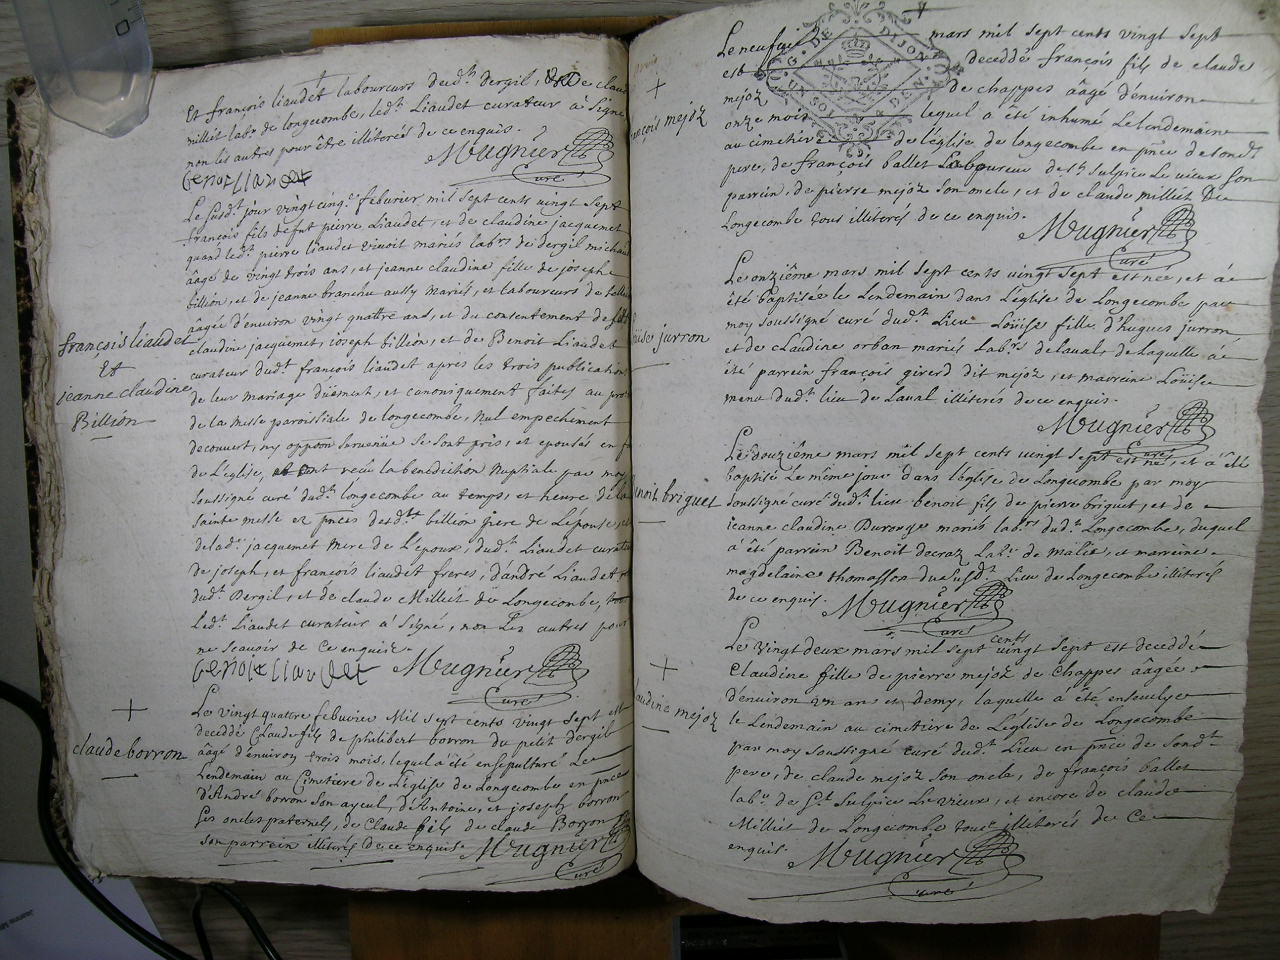 Et françois liaudet laboureurs dudt dergil, de claude
millit labr de longecombe, ledt Liaudet curateur a signé
non les autres pour être illiterés de ce enquis.
Mugnier
Curé
benoit liaudet
Le susdt jour vingt cinqe febvrier mil sept cents vingt sept
françois fils defunt pierre Liaudet, et de claudine jacquemet
quand ledt pierre liaudet vivoit mariés labrs de dergil michaud
ââgé de vingt trois ans, et jeanne claudine fille de joseph
billion, et de jeanne branchu aussy mariés, et laboureurs de
ââgée d'environ vingt quattre ans, et du consentement de
claudine jacquemet, joseph billion, et de Benoit Liaudet
curateur dudt françois liaudet apres les trois publications
de leur mariage düement, et canoniquement faites au
de la messe paroissiale de longecombe, nul empechement
decouvert, ny oppoon survenüe se sont pris, et epousés en
de L'église, et ont receu la benediction Nuptiale par moy
soussigné curé dudt longecombe au temps, et heure de la
sainte messe ez pnces desdts billion pere de L'épouse,
de lade jacquemet mere de L'époux, dudt Liaudet curateur
de joseph, et françois liaudet freres, d'andré Liaudet
dudt Dergil, et de claude Milliet de Longecombe,
ledt Liaudet curateur a signé, non Les autres pour
ne sçavoir de ce enquis.
françois liaudet
Et
jeanne claudine
Billion
benoit liaudet
Mugnier
Curé
Le vingt quattre febvrier Mil sept cents vingt sept est
decedé Claude fils de philibert borron du petit dergil
ââgé d'environ trois mois, lequel a été ensepulturé Le
Lendemain au Cimetiere de L'église de Longecombe en pnce
d'André borron son ayeul, d'Antoine, et joseph borron
ses oncles paternels, de Claude fils de claude Borron
son parrein illiterés de ce enquis.
Mugnier
Curé
claude borron
G. DE DIJON
UN SOL DEN
Le neufvie mars mil sept cents vingt sept
est decedé françois fils de claude
mejoz de chappes âagé d'environ
onze mois lequel a été inhumé Le lendemain
au cimetiere de l'église de longecombe en pnce de sondt
pere, de françois ballet Laboureur de st sulpice Le vieux son
parrein, de pierre mejoz son oncle, et de claude millict De
Longecombe tous illiterés de ce enquis.
Mugnier
Curé
françois mejoz
Le onziême mars mil sept cents vingt sept est née, et a
été baptisée le Lendemain dans L'église de Longecombe par
moy soussigné curé dudt Lieu Loüise fille d'hugues jurron
et de claudine orban mariés labrs de laval, de laquelle a
été parrein françois girerd dit mejoz, et marreine Loüise
menu dudt lieu de Laval illiterés de ce enquis.
Mugnier
Curé
Louise jurron
Le douziême mars mil sept cents vingt sept est né, et a été
baptisé Le même jour dans L'église de Longecombe par moy
soussigné curé dudt lieu benoit fils de pierre briguet, et de
jeanne claudine Duroge mariés labrs dudt Longecombe, duquel
a été parrein Benoit decraz Labr de malié, et marreine
magdelaine thomasson du susdt Lieu de Longecombe illiterés
de ce enquis.
Mugnier
Curé
benoit briguet
Le Vingt deux mars mil sept cents vingt sept est decedée
Claudine fille de pierre mejoz de Chappes âagée
d'environ un an et demy, laquelle a été ensevelye
le Lendemain au cimetiere de L'église de Longecombe
par moy soussigné curé dudt Lieu en pnce de sondt
pere, de claude mejoz son oncle, de françois ballet
labr de st sulpice Le vieux, et encore de claude
Milliet de Longecombe tous illiterés de ce
enquis.
Mugnier
Curé
claudine mejoz